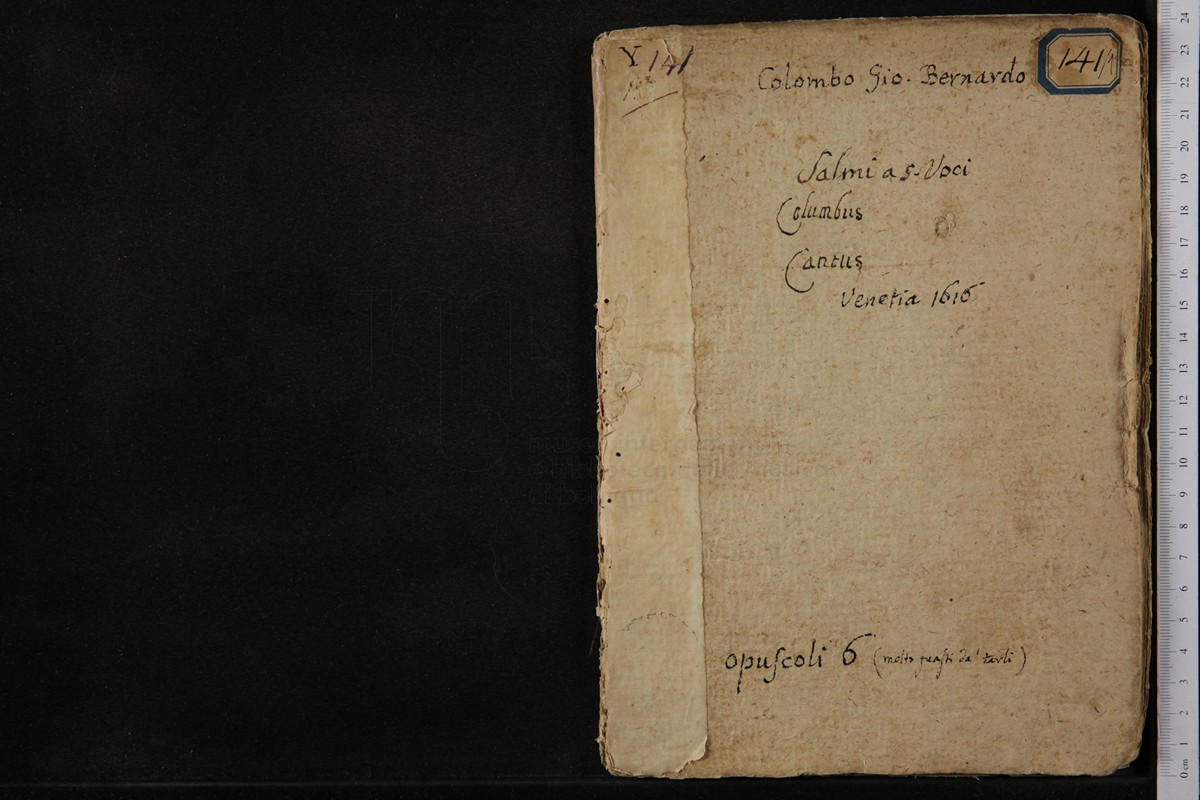 Y 141
141/1
Colombo Gio. Bernardo
Salmi a 5. Voci
Columbus
Cantus
Venetia 1616
opuscoli 6 (molto guasti da' tarli)
24
23
22
21
20
19
18
17
16
15
14
13
12
11
10
9
8
7
6
5
4
3
2
1
0 cm